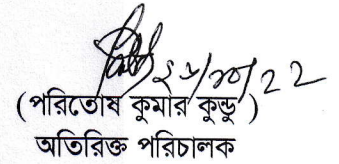 ২৬/১০/২২
(পরিতোষ কুমার কুন্ডু)
অতিরিক্ত পরিচালক